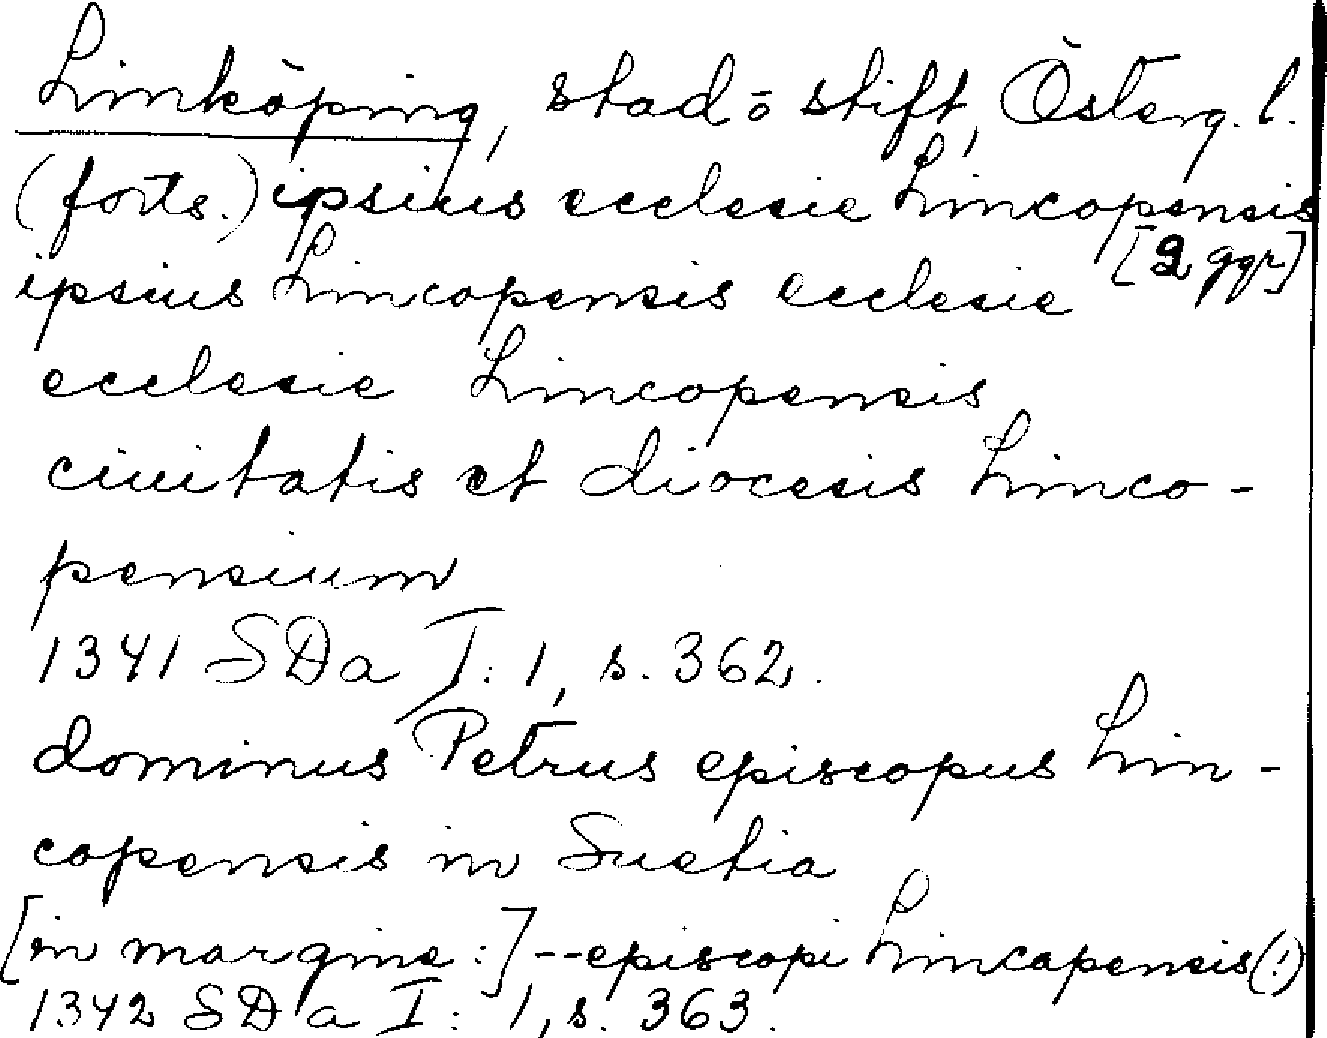 Linköping, stad o stift, Österg. l.
(forts.) ipsius ecclesie Lincopensis
[2 ggr]
ipsius Lincopensis ecclesie
ecclesie Lincopensis
ciuitatis et diocesis Linco-
pensium
1341 SDa I: 1, s. 362.
dominus Petrus episcopus Lin-
copensis in Suetia
[in margine:] -- episcopi Lincapensis (!)
1342 SDa I: 1, s. 363.